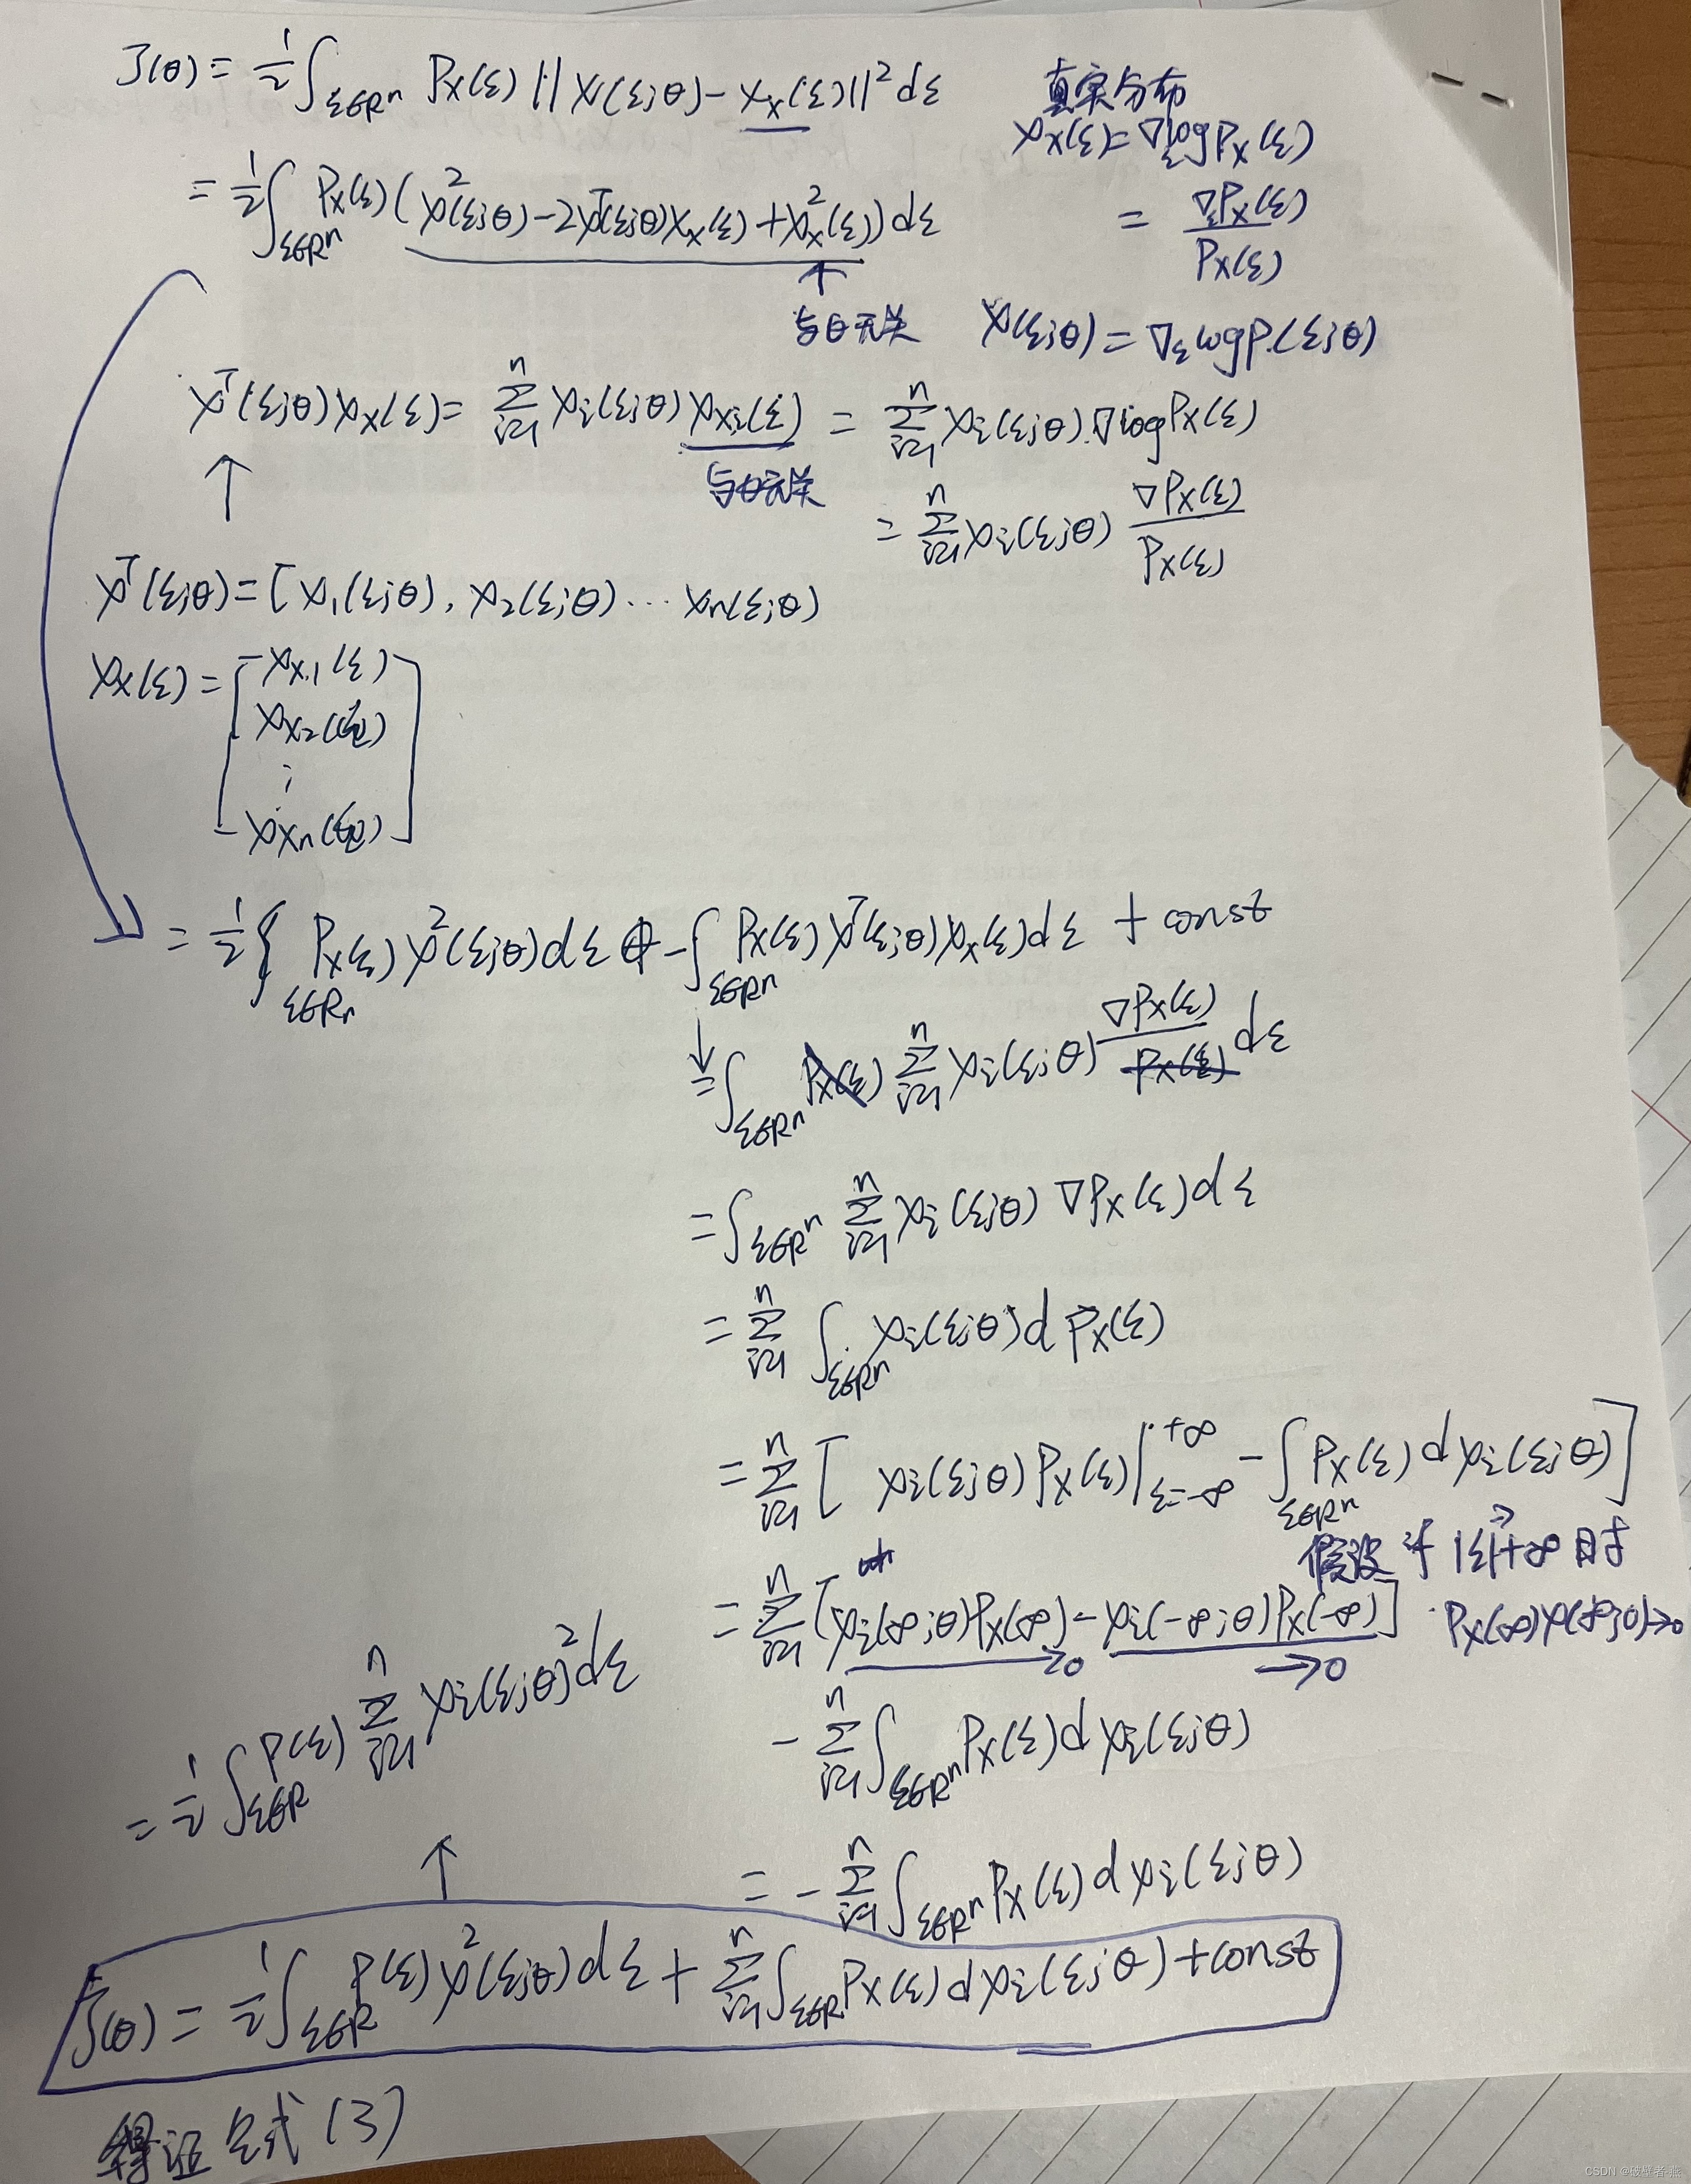 J(θ) = 1/2 ∫_{ξ∈Rⁿ} P_X(ξ) ||ψ(ξ;θ) - ψ_X(ξ)||² dξ
真实分布
ψ_X(ξ) = ∇_ξ log P_X(ξ)
= 1/2 ∫_{ξ∈Rⁿ} P_X(ξ) (ψ²(ξ;θ) - 2ψᵀ(ξ;θ)ψ_X(ξ) + ψ_X²(ξ)) dξ
= ∇_ξ P_X(ξ) / P_X(ξ)
↑
与θ无关
ψ(ξ;θ) = ∇_ξ log P(ξ;θ)
ψᵀ(ξ;θ)ψ_X(ξ) = Σ_{i=1}^n ψ_i(ξ;θ) ψ_{Xi}(ξ) = Σ_{i=1}^n ψ_i(ξ;θ) · ∇log P_X(ξ)
↑
与θ无关
= Σ_{i=1}^n ψ_i(ξ;θ) ∇P_X(ξ) / P_X(ξ)
ψᵀ(ξ;θ) = [ψ_1(ξ;θ), ψ_2(ξ;θ) ... ψ_n(ξ;θ)
ψ_X(ξ) = [ψ_{X1}(ξ)
ψ_{X2}(ξ)
⋮
ψ_{Xn}(ξ)]
= 1/2 ∫_{ξ∈Rn} P_X(ξ) ψ²(ξ;θ) dξ - ∫_{ξ∈Rⁿ} P_X(ξ) ψᵀ(ξ;θ) ψ_X(ξ) dξ + const
↓
= ∫_{ξ∈Rⁿ} P_X(ξ) Σ_{i=1}^n ψ_i(ξ;θ) ∇P_X(ξ) / P_X(ξ) dξ
= ∫_{ξ∈Rⁿ} Σ_{i=1}^n ψ_i(ξ;θ) ∇P_X(ξ) dξ
= Σ_{i=1}^n ∫_{ξ∈Rⁿ} ψ_i(ξ;θ) d P_X(ξ)
= Σ_{i=1}^n [ψ_i(ξ;θ) P_X(ξ) |_{ξ=-∞}^{+∞} - ∫_{ξ∈Rⁿ} P_X(ξ) d ψ_i(ξ;θ)]
假设 当 |ξ|→+∞ 时
= Σ_{i=1}^n [ψ_i(∞;θ)P_X(∞) - ψ_i(-∞;θ)P_X(-∞)]
P_X(∞)ψ(∞;θ)→0
→0
→0
- Σ_{i=1}^n ∫_{ξ∈Rⁿ} P_X(ξ) d ψ_i(ξ;θ)
= 1/2 ∫_{ξ∈R} P(ξ) Σ_{i=1}^n ψ_i(ξ;θ)² dξ
↑
= - Σ_{i=1}^n ∫_{ξ∈Rⁿ} P_X(ξ) d ψ_i(ξ;θ)
J(θ) = 1/2 ∫_{ξ∈R} P(ξ) ψ²(ξ;θ) dξ + Σ_{i=1}^n ∫_{ξ∈R} P_X(ξ) d ψ_i(ξ;θ) + const
得证公式(3)
CSDN @破壁者-燕